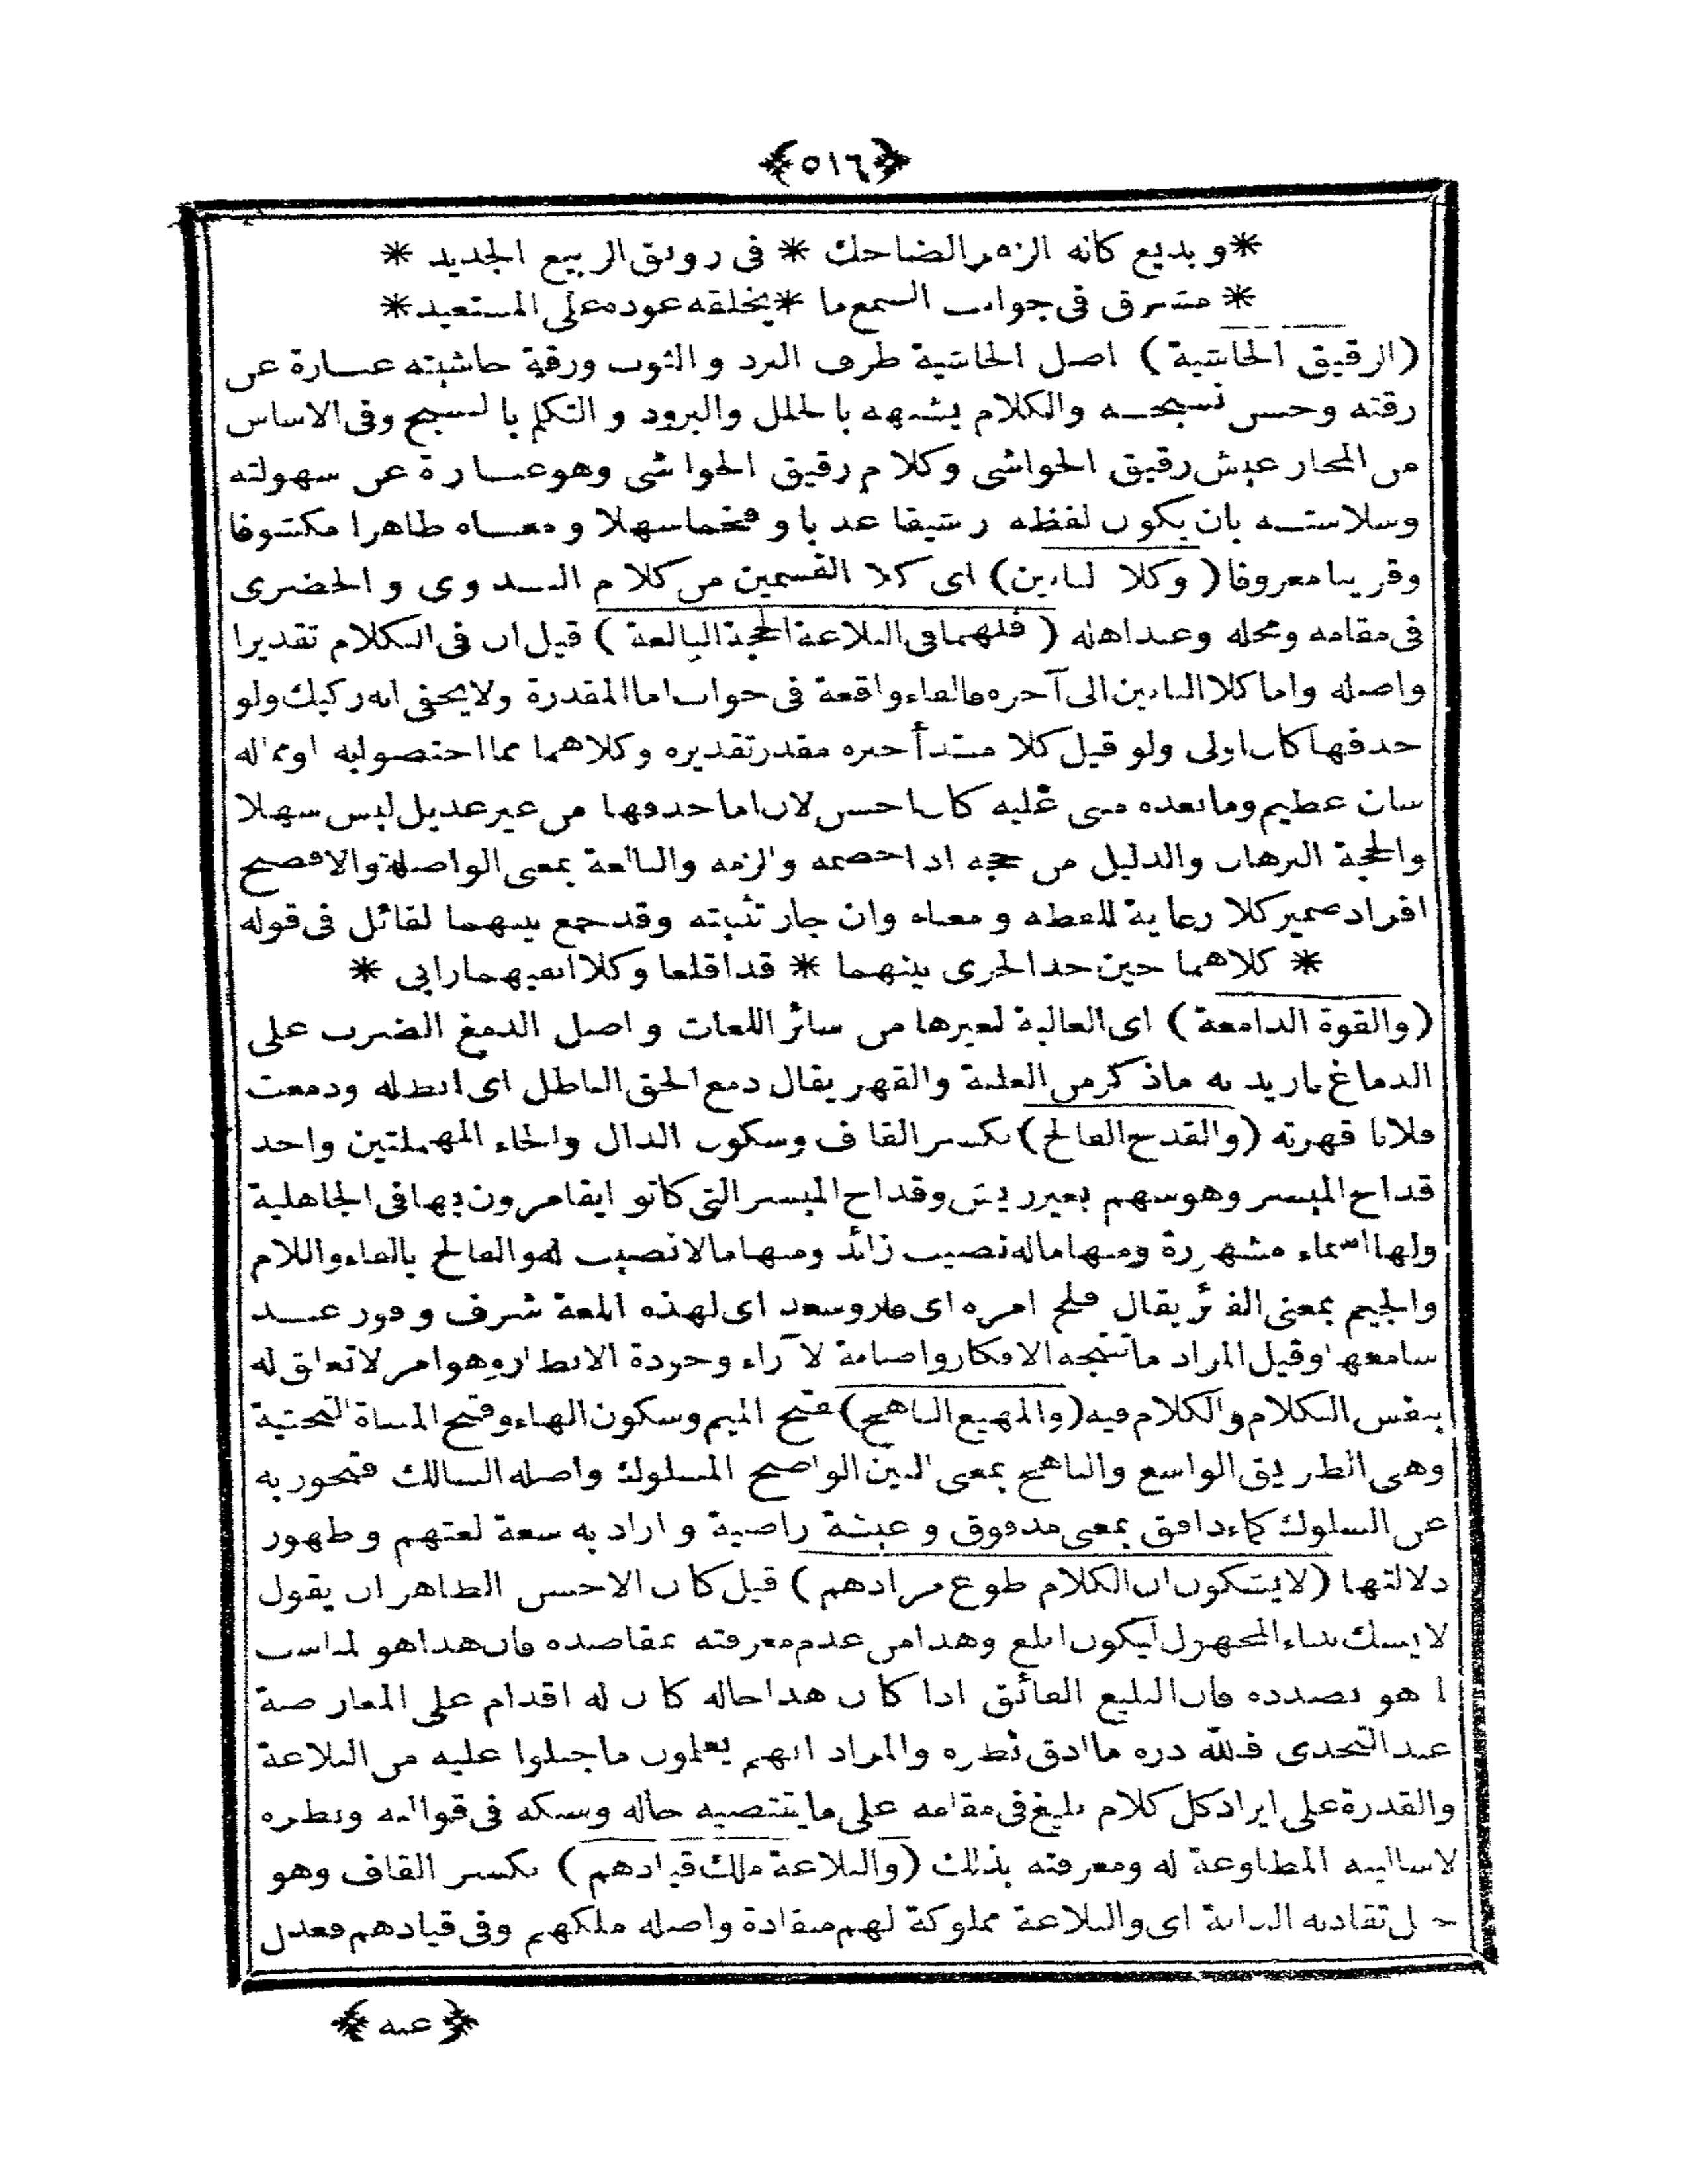 ﴿٥١٦﴾
* وبديع كانه الزهر الضاحك * فى رونق الربيع الجديد *
* مشرق فى جوانب السمع ما * يخلقه عوده على المستعيد *
(الرقيق الحاشية) اصل الحاشية طرف البرد والثوب ورقة حاشيته عبارة عن
رقته وحسن نسجه والكلام يشبه بالحلل والبرود والتكلم بالنسج وفى الاساس
من المجاز عيش رقيق الحواشى وكلام رقيق الحواشى وهو عبارة عن سهولته
وسلاسته بان يكون لفظه رشيقا عذبا وفخما سهلا ومعناه ظاهرا مكشوفا
وقريبا معروفا (وكلا البابين) اى كلا القسمين من كلام البدوى والحضرى
فى مقامه ومحله وعند اهله (فلهما فى البلاغة الحجة البالغة) قيل ان فى الكلام تقديرا
واصله واما كلا البابين الى آخره فالفاء واقعة فى جواب اما المقدرة ولا يخفى انه ركيك ولو
حذفها كان اولى ولو قيل كلا مبتدأ خبره مقدر تقديره وكلاهما مما اختصوا به او مما له
شان عظيم وما بعده مبنى عليه كان احسن لان اما حذفها من غير عديل ليس سهلا
والحجة البرهان والدليل من حجه اذا خصمه والزمه والبالغة بمعنى الواصلة والافصح
افراد ضمير كلا رعاية للفظه ومعناه وان جاز تثنيته وقد جمع بينهما القائل فى قوله
* كلاهما حين جد الجرى بينهما * قد اقلعا وكلا انفيهما رابى *
(والقوة الدامغة) اى الغالبة لغيرها من سائر اللغات واصل الدمغ الضرب على
الدماغ فاريد به ماذكر من الغلبة والقهر يقال دمغ الحق الباطل اى ابطله ودمغت
فلانا قهرته (والقدح الفالج) بكسر القاف وسكون الدال والحاء المهملتين واحد
قداح الميسر وهو سهم بغير ريش وقداح الميسر التى كانوا يقامرون بها فى الجاهلية
ولها اسماء مشهورة ومنها ماله نصيب زائد ومنها مالا نصيب له والفالج بالفاء واللام
والجيم بمعنى الفائز يقال فلج امره اى فاز وسعد اى لهذه اللغة شرف وفوز عند
سامعها وقيل المراد ما تنتجه الافكار واصابة الآراء وجودة الانظار وهو امر لا تعلق له
بنفس الكلام والكلام فيه (والمهيع الناهج) بفتح الميم وسكون الهاء وفتح المثناة التحتية
وهى الطريق الواسع والناهج بمعنى البين الواضح المسلوك واصله السالك فتجوز به
عن السلوك كماء دافق بمعنى مدفوق وعيشة راضية واراد به سعة لغتهم وظهور
دلالتها (لا يشكون ان الكلام طوع مرادهم) قيل كان الاحسن الظاهر ان يقول
لا يشك بناء المجهول ليكون ابلغ وهذا من عدم معرفته بمقاصده فان هذا هو المناسب
لما هو بصدده فان البليغ الفائق اذا كان هذا حاله كان له اقدام على المعارضة
عند التحدى فلله دره ما ادق نظره والمراد انهم يعلمون ما جبلوا عليه من البلاغة
والقدرة على ايراد كل كلام بليغ فى مقامه على ما يقتضيه حاله وسبكه فى قوالبه ونظره
لاساليبه المطاوعة له ومعرفته بذلك (والبلاغة ملك قيادهم) بكسر القاف وهو
حبل تقاد به الدابة اى والبلاغة مملوكة لهم منقادة واصله ملكهم وفى قيادهم فعدل
﴿عنه﴾